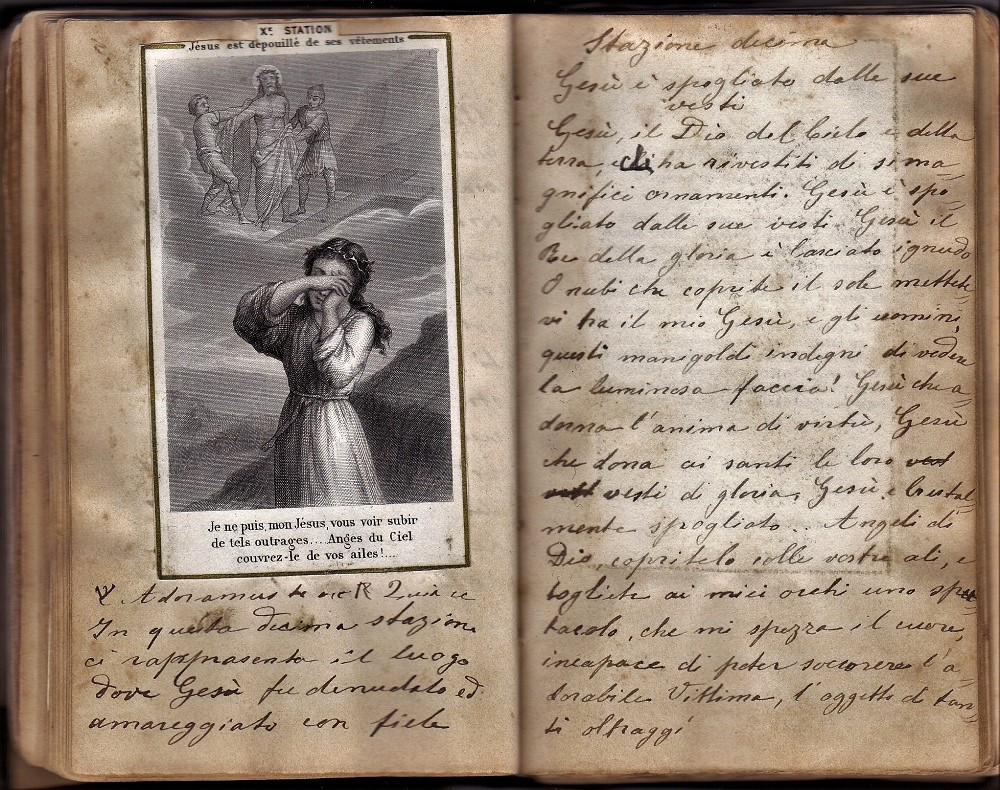 Xᵉ STATION
Jésus est dépouillé de ses vêtements
Je ne puis, mon Jésus, vous voir subir
de tels outrages.....Anges du Ciel
couvrez-le de vos ailes!....
℣ Adoramus te etc ℟ Quia ce
In questa decima stazione
ci rappresenta il luogo
dove Gesù fu denudato ed
amareggiato con fiele
Stazione decima
Gesù è spogliato dalle sue
vesti
Gesù, il Dio del Cielo e della
terra, ha rivestiti di sì ma
gnifici ornamenti. Gesù è spo
gliato dalle sue vesti Gesù il
Re della gloria è lasciato ignudo
O nubi che coprite il sole mettete
vi tra il mio Gesù, e gli uomini,
questi manigoldi indegni di vedere
la luminosa faccia! Gesù che a
dorna l'anima di virtù, Gesù
che dona ai santi le loro
vesti di gloria, Gesù è brutal
mente spogliato... Angeli di
Dio, copritelo colle vostre ali, e
togliete ai miei occhi uno spet
tacolo, che mi spezza il cuore,
incapace di poter soccorere l'a
dorabile Vittima, l'oggetto di tan
ti oltraggi